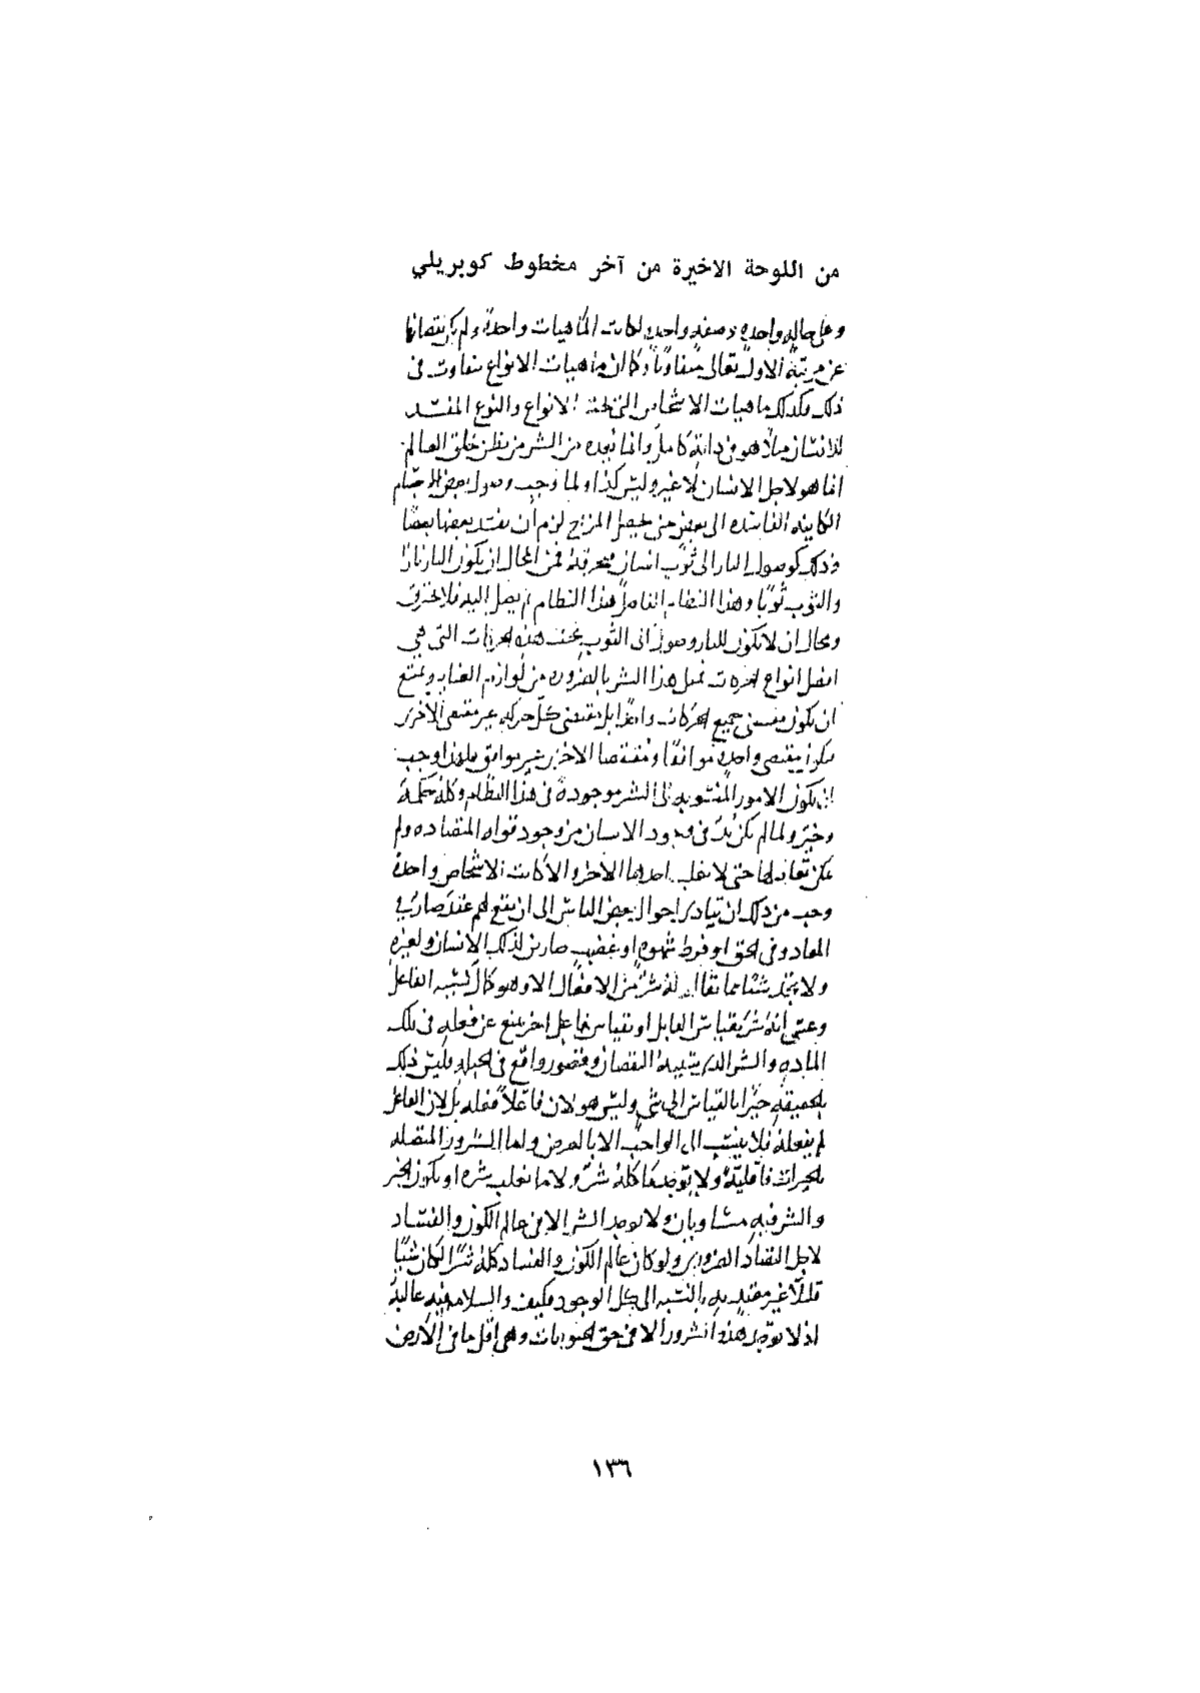 من اللوحة الاخيرة من آخر مخطوط كوبريلي
وعلى حاله واحده وصفه واحده لكانت الماهيات واحدة ولم يكن نقصانها
عن مرتبة الاول تعالى متفاوتا وكما ان ماهيات الانواع تتفاوت في
ذلك فكذلك ماهيات الاشخاص التي تحت الانواع والنوع المفسد
للانسان مثلا هو في ذاته كامل وانما نجده من الشر من يظن خلق العالم
انما هو لاجل الانسان لا غير وليس كذا ولما وجب وصول بعض الاجسام
الكاينه الفاسده الى بعض حتى يحصل المزاج لزم ان يفسد بعضها بعضا
وذلك كوصول النار الى ثوب انسان فتحرقه فمن المحال ان يكون النار نارا
والثوب ثوبا وهذا النظام الفاضل هذا النظام ثم يصل اليه فلا يحترق
ومحال ان لا يكون للنار وصول الى الثوب تحت هذه الحركات التي هي
افضل انواع الحركات فمثل هذا الشر بالضروره من لوازم العنايه ويمتنع
ان يكون مقتضى جميع الحركات واحدا بل مقتضى كل حركه غير مقتضى الاخرى
فيكون مقتضى واحده موافقا ومقتضا الاخرى غير موافق فلهذا وجب
ان يكون الامور المنسوبه الى الشر موجودة في هذا النظام وكله حكمة
وخير ولما لم يكن بد في وجود الانسان من وجود قواه المتضاده ولم
يمكن تعادلها حتى لا يغلب احدها الاخر والا كانت الاشخاص واحدة
وجب من ذلك ان تتادى احوال بعض الناس الى ان يقع لهم عقد ضار في
المعاد وفي الحق او فرط شهوه او غضب ضارين لذلك الانسان ولغيره
ولا تجد شيئا مما يقال له شر من الافعال الا وهو كمال لسببه الفاعل
وعسى انه شر بقياس القابل او بقياس فاعل اخر يمنع عن فعله في تلك
الماده والشر الذي سببه النقصان وقصور واقع في الجبله وليس ذلك
بالحقيقه خيرا بالقياس الى شي وليس هو لان فاعلا فعله بل لان الفاعل
لم يفعله فلا ينسب الى الواجب الا بالعرض واما الشرور المتصله
بالخيرات فاقلية ولا يوجد ما كله شر ولا ما يغلب شره او يكون الخير
والشر فيه متساويان ولا يوجد الشر الا في عالم الكون والفساد
لاجل التضاد الضروري ولو كان عالم الكون والفساد كله شرا لكان شيا
قليلا غير معتد به بالنسبه الى كل الوجود فكيف والسلامه فيه غالبة
اذ لا توجد هذه الشرور الا في حق الحيوانات وهي اقل ما في الارض
١٣٦